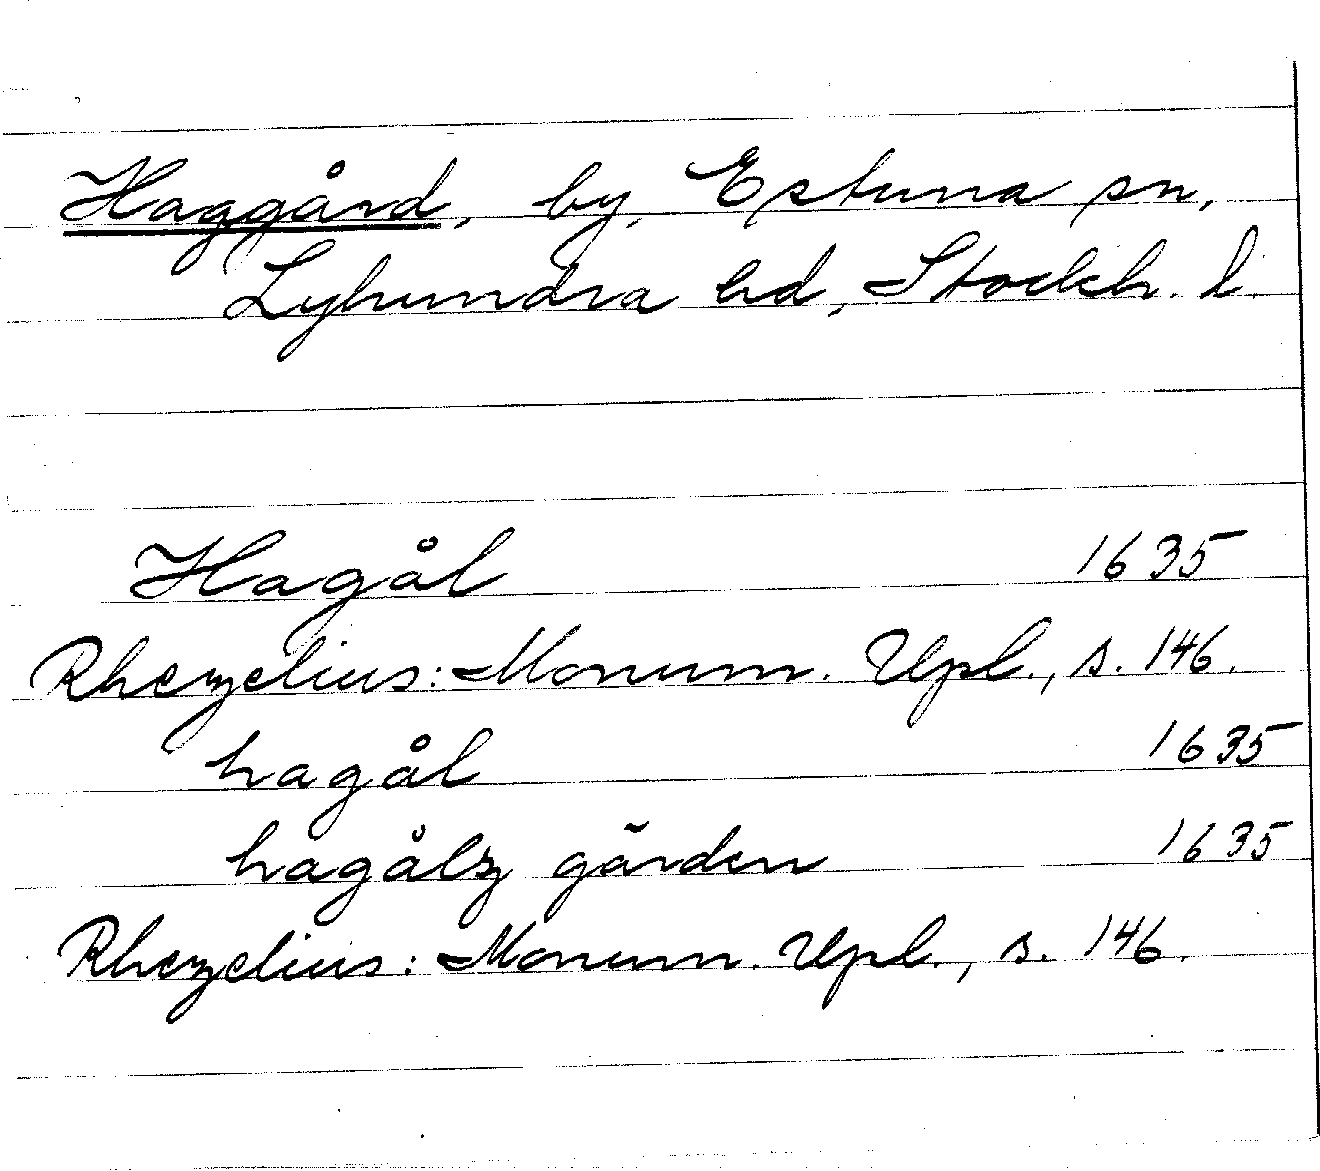 Haggård, by, Estuna sn,
Lyhundra hd, Stockh. l.
Hagål 1635
Rhezelius: Monum. Upl., s. 146.
hagål 1635
hagålz gården 1635
Rhezelius: Monum. Upl., s. 146.